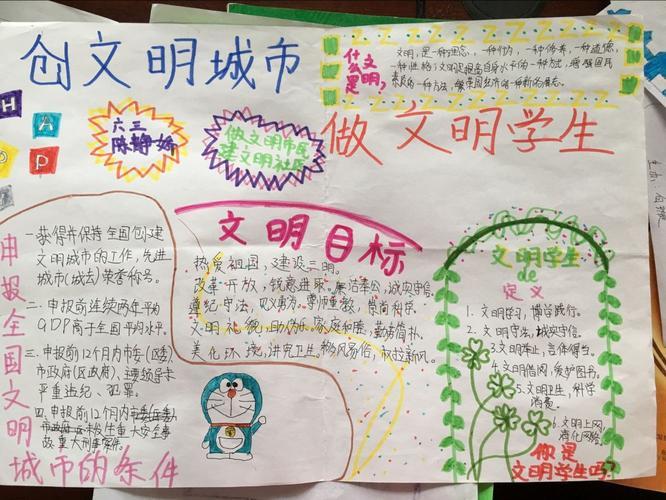 创文明城市
什么是文明?
文明,是一种理念,一种行为,一种修养,一种道德,
一种性格;文明是提高自身水平的一种方法,增强国民
素质的一种方法,
H
A
P
P
六三
做文明市民
建文明社区
做文明学生
文明目标
热爱祖国,建设三明。
改革开放,锐意进取。廉洁奉公,诚实守信。
遵纪守法,见义勇为。尊师重教,崇尚科学。
文明礼貌,助人为乐。家庭和睦,勤劳简朴。
美化环境,讲究卫生。移风易俗,
申报全国文明
城市的条件
一.获得并保持全国创建
文明城市的工作,先进
城市(城区)荣誉称号。
二.申报前连续两年平均
GDP高于全国平均水平。
三.申报前12个月内市委(区委)
市政府(区政府),主要领导无
严重违纪、犯罪。
四.申报前12个月内
发生重大安全事
故,重大刑事案件。
文明学生
de
定义
1.文明学习,博学践行。
2.文明守法,诚实守信。
3.文明举止,言体得当。
4.文明借阅,爱护图书。
5.文明卫生,科学
消费。
6.文明上网,
净化网络。
你是
文明学生吗?